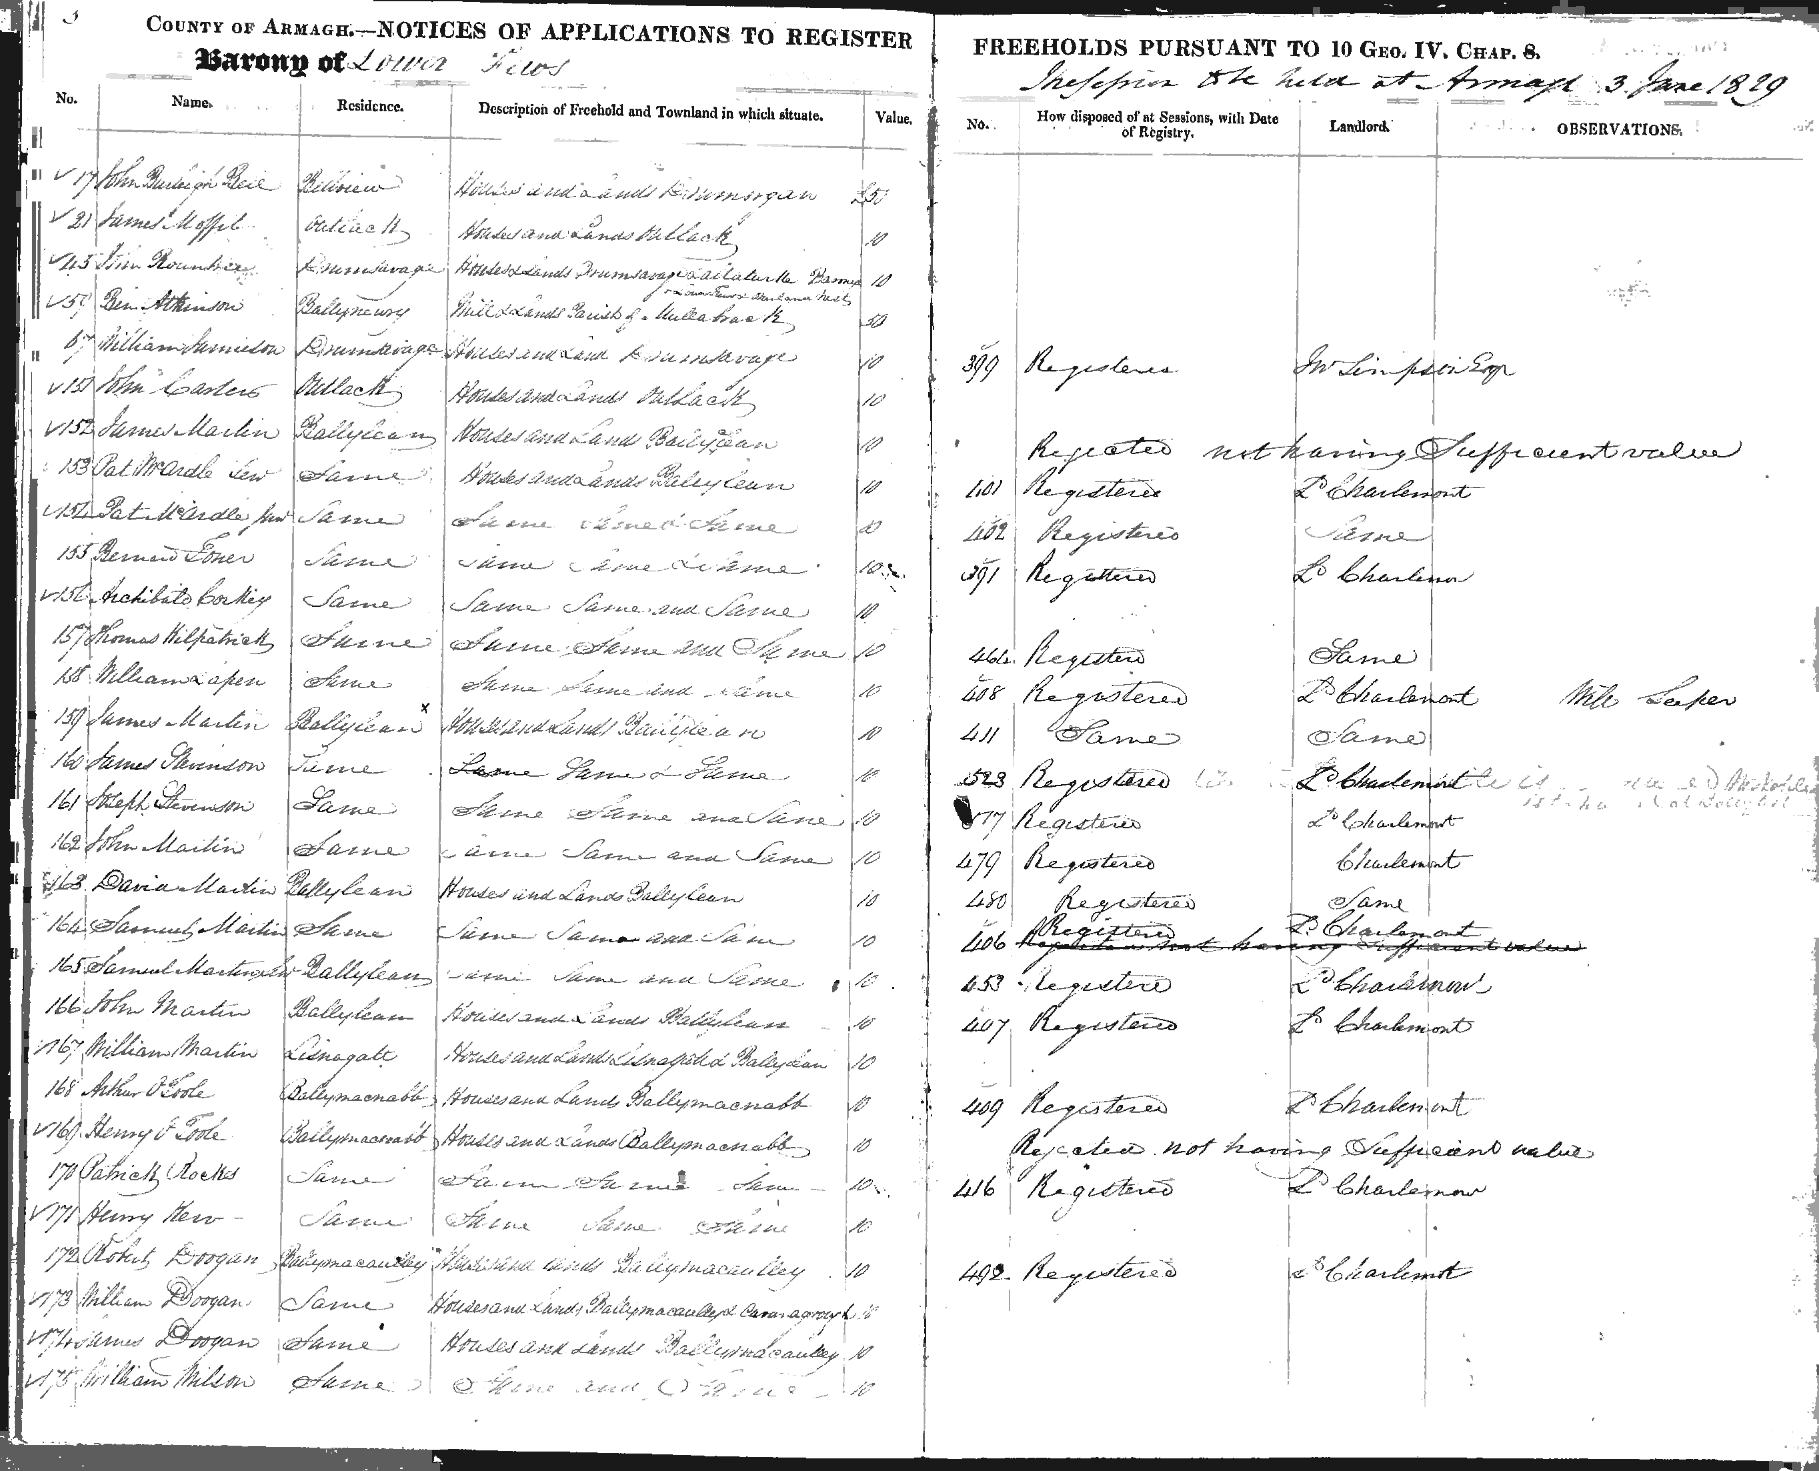 3
COUNTY OF ARMAGH.—NOTICES OF APPLICATIONS TO REGISTER FREEHOLDS PURSUANT TO 10 GEO. IV. CHAP. 8.
Barony of Lower Fews to be held at Armagh 3 June 1829
No. Name. Residence. Description of Freehold and Townland in which situate. Value. No. How disposed of at Sessions, with Date of Registry. Landlord. OBSERVATIONS.
17 John Burleigh Bell Bellview Houses and Lands Drumorgan £50
21 James Moffit Outlack Houses and Lands Outlack 10
45 John Rountree Drumsavage Houses & Lands Drumsavage 10
59 Ben Atkinson Ballynewry Mill & Lands Parish of Mullabrack 50
67 William Jamieson Drumsavage Houses and Land Drumsavage 10 399 Registered Jno Simpson Esqr
151 John Carters Outlack Houses and Lands Outlack 10
152 James Martin Ballylean Houses and Lands Ballylean 10 Rejected not having Sufficient value
153 Pat McArdle Senr Same Houses and Lands Ballylean 10 401 Registered Ld Charlemont
154 Pat McArdle Junr Same Same Same & Same 10 402 Registered Same
155 Bernard Toner Same Same Same & Same 10 391 Registered Ld Charlemon
156 Archibald Corkey Same Same Same and Same 10
157 Thomas Kilpatrick Same Same Same and Same 10 464 Registerd Same
158 William Lapen Same Same Same and Same 10 408 Registered Ld Charlemont Will Leeper
159 James Martin Ballylean x Houses and Lands Ballylean 10 411 Same Same
160 James Stevinson Same Same Same & Same 10 523 Registered Ld Charlemont
161 Joseph Stevenson Same Same Same and Same 10 Registered Ld Charlemont
162 John Martin Same Same Same and Same 10 479 Registered Charlemont
163 David Martin Ballylean Houses and Lands Ballylean 10 480 Registered Same
164 Samuel Martin Same Same Same and Same 10 406 Registered Ld Charlemont
not having Sufficient value
165 Samuel Martin Senr Ballylean Same Same and Same 10 453 Registerd Ld Charlemont
166 John Martin Ballylean Houses and Lands Ballylean 10 407 Registered Ld Charlemont
167 William Martin Lisnagatt Houses and Lands Lisnagatt & Ballylean 10
168 Arthur O'Toole Ballymacnabb Houses and Lands Ballymacnabb 10 409 Registered Ld Charlemont
169 Henry O'Toole Ballymacnabb Houses and Lands Ballymacnabb 10 Rejected not having Sufficient value
170 Patrick Rocks Same Same Same Same 10 416 Registered Ld Charlemon
171 Henry Kerr Same Same Same Same 10
172 Robert Doogan Ballymacaulley Houses and Lands Ballymacaulley 10 492 Registered Ld Charlemont
173 William Doogan Same Houses and Lands Ballymacaulley & 10
174 James Doogan Same Houses and Lands Ballymacaulley 10
175 William Wilson Same Same and Same 10